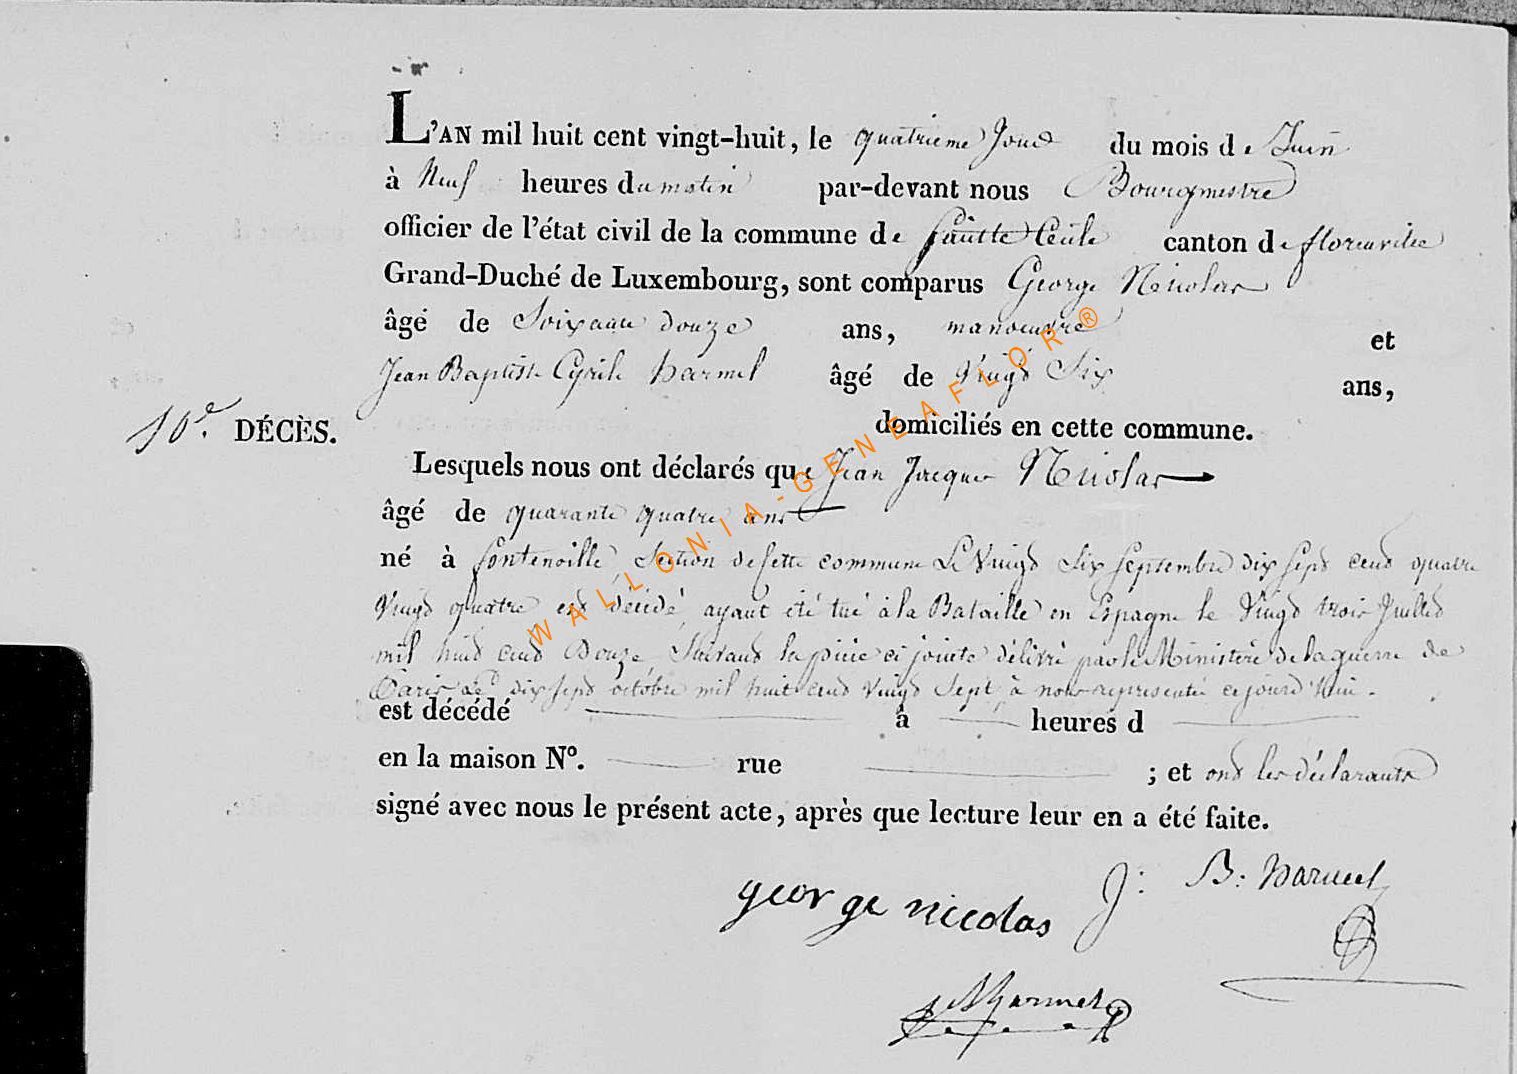 L'AN mil huit cent vingt-huit, le quatrieme Jour du mois de Juin
à Neuf heures du matin par-devant nous Bourgmestre
officier de l'état civil de la commune de canton de florenville
Grand-Duché de Luxembourg, sont comparus George Nicolas
âgé de Soixante douze ans, manoeuvre et
Jean Baptiste Cyrile harmel âgé de Vingt Six ans,
domiciliés en cette commune.
10e. DÉCÈS.
Lesquels nous ont déclarés que Jean Jacques Nicolas
âgé de quarante quatre ans
né à fontenoille, Section de Cette commune Le Vingt Six Septembre dix sept cent quatre
Vingt quatre est décédé, ayant été tué à la Bataille en Espagne le Vingt trois Juillet
mil huit cent Douze, Suivant la pièce ci jointe délivré par le Ministère de la guerre de
Paris Le dix sept octobre mil huit cent Vingt Sept, à nous representée cejourd'hui.
est décédé à heures d
en la maison N°. rue ; et ont les déclarants
signé avec nous le présent acte, après que lecture leur en a été faite.
george nicolas J: B: harmel
harmel
WALLONIA-GENEAFLOR®